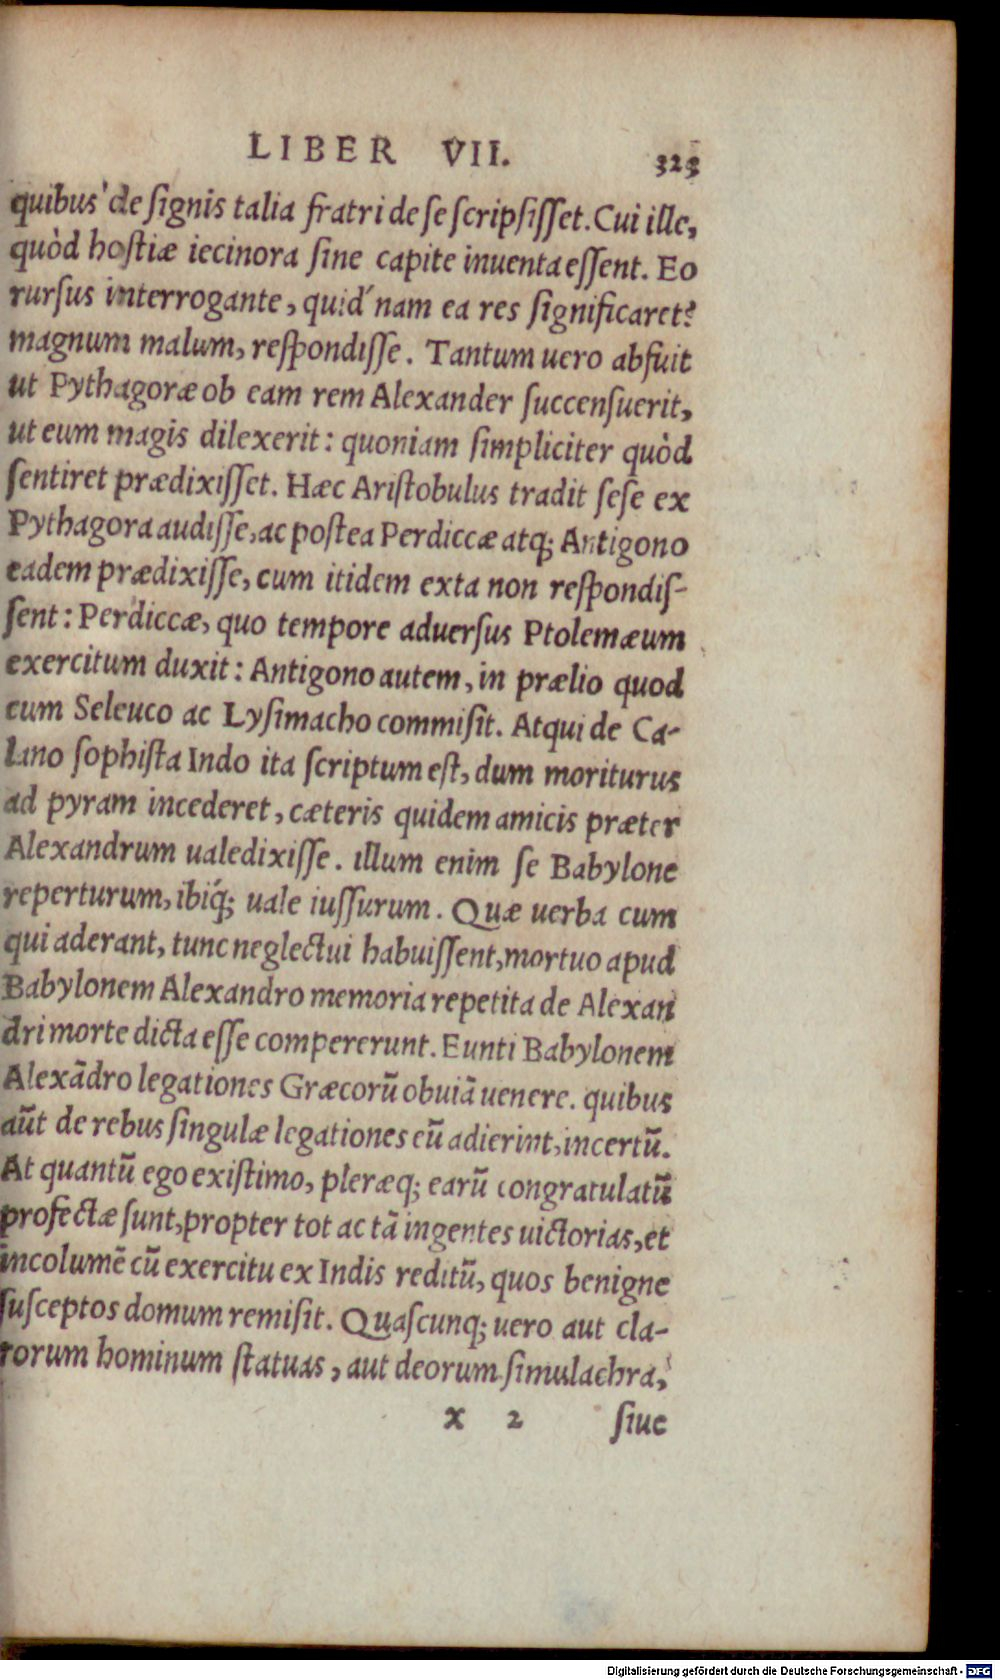 LIBER VII. 323
quibus de signis talia fratri de se scripsisset. Cui ille,
quòd hostiæ iecinora sine capite inuenta essent. Eo
rursus interrogante, quid nam ea res significaret?
magnum malum, respondisse. Tantum uero abfuit
ut Pythagoræ ob eam rem Alexander succensuerit,
ut eum magis dilexerit: quoniam simpliciter quòd
sentiret prædixisset. Hæc Aristobulus tradit sese ex
Pythagora audisse, ac postea Perdiccæ atq; Antigono
eadem prædixisse, cum itidem exta non respondis-
sent: Perdiccæ, quo tempore aduersus Ptolemæum
exercitum duxit: Antigono autem, in prælio quod
cum Seleuco ac Lysimacho commisit. Atqui de Ca-
lano sophista Indo ita scriptum est, dum moriturus
ad pyram incederet, cæteris quidem amicis præter
Alexandrum ualedixisse. illum enim se Babylone
reperturum, ibiq́; uale iussurum. Quæ uerba cum
qui aderant, tunc neglectui habuissent, mortuo apud
Babylonem Alexandro memoria repetita de Alexan
dri morte dicta esse compererunt. Eunti Babylonem
Alexãdro legationes Græcorũ obuiã uenere. quibus
aũt de rebus singulæ legationes eũ adierint, incertũ.
At quantũ ego existimo, pleræq; earũ congratulatũ
profectæ sunt, propter tot ac tã ingentes uictorias, et
incolumẽ cũ exercitu ex Indis reditũ, quos benigne
susceptos domum remisit. Quascunq; uero aut cla-
rorum hominum statuas, aut deorum simulachra,
x 2 siue
Digitalisierung gefördert durch die Deutsche Forschungsgemeinschaft - DFG